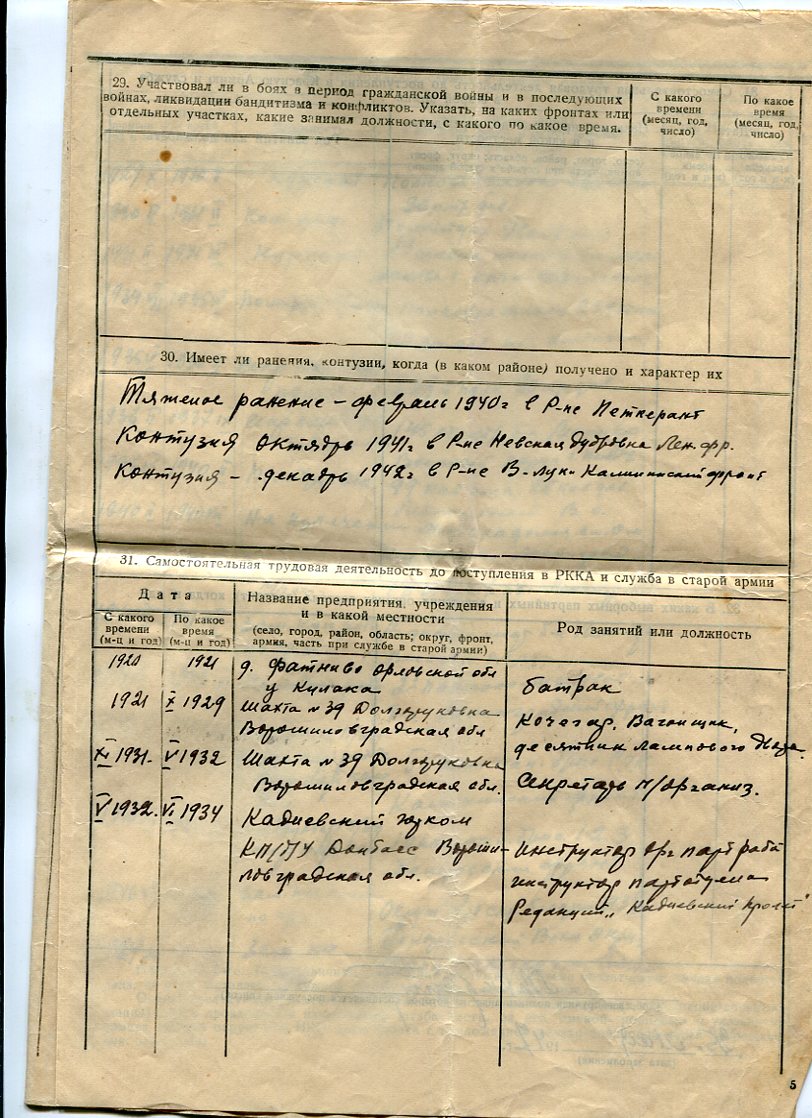 29. Участвовал ли в боях в период гражданской войны и в последующих
войнах, ликвидации бандитизма и конфликтов. Указать, на каких фронтах или
отдельных участках, какие занимал должности, с какого по какое время.
С какого
времени
(месяц, год,
число)
По какое
время
(месяц, год,
число)
30. Имеет ли ранения, контузии, когда (в каком районе) получено и характер их
Тяжелое ранение – февраль 1940г в Р-не Петкерант
Контузия октябрь 1941г в Р-не Невская Дубровка Лен. фр.
Контузия – декабрь 1942г в Р-не В. Луки Калининский фронт
31. Самостоятельная трудовая деятельность до поступления в РККА и служба в старой армии
Дата
С какого
времени
(м-ц и год)
По какое
время
(м-ц и год)
Название предприятия, учреждения
и в какой местности
(село, город, район, область; округ, фронт,
армия, часть при службе в старой армии)
Род занятий или должность
1920 1921 д. Фатнево Орловской обл
у Кулака батрак
1921 X 1929 Шахта № 39 Должуковка
Ворошиловградская обл Кочегар, Вагонщик,
десятник лампового
XI 1931. V 1932 Шахта № 39 Должуковка
Ворошиловградская обл. Секретарь п/организ.
V 1932. VI 1934 Кадиевский горком
КП/б/У Донбасс Вороши-
ловградская обл. Инструктор орг парт раб
инструктор партотдела
Редакции „Кадиевский
5